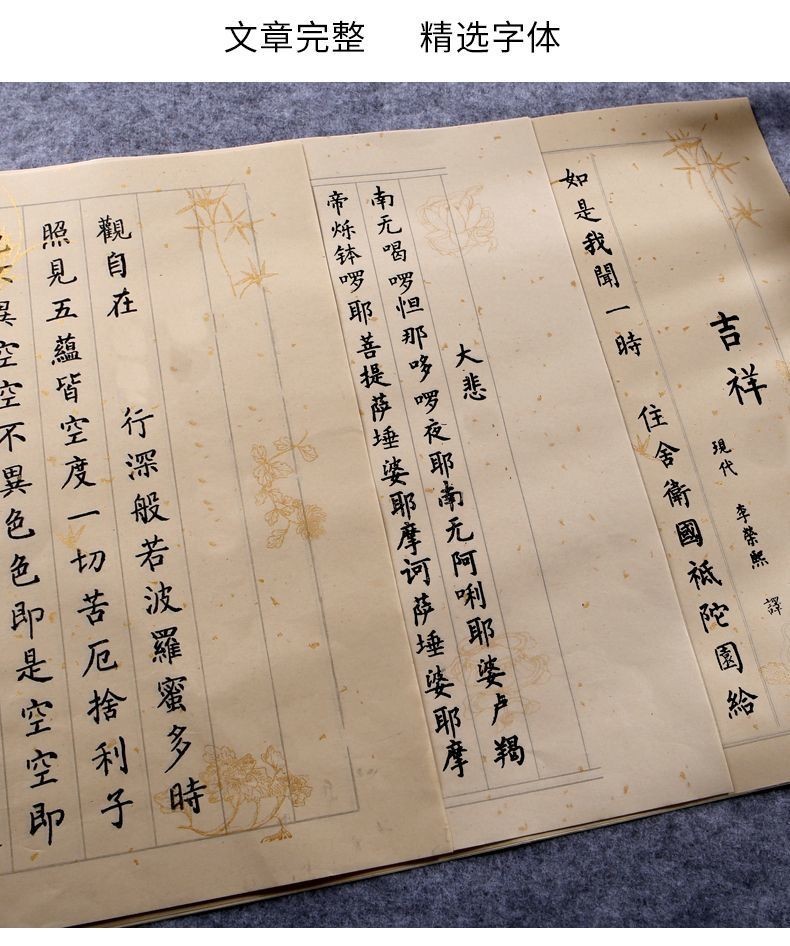 文章完整 精选字体
吉祥
現代 李榮熙 譯
如是我聞一時 住舍衛國祗陀園給
大悲
南无喝啰怛那哆啰夜耶南无阿唎耶婆卢羯
帝烁钵啰耶菩提萨埵婆耶摩诃萨埵婆耶摩
觀自在 行深般若波羅蜜多時
照見五蘊皆空度一切苦厄捨利子
異空空不異色色即是空空即